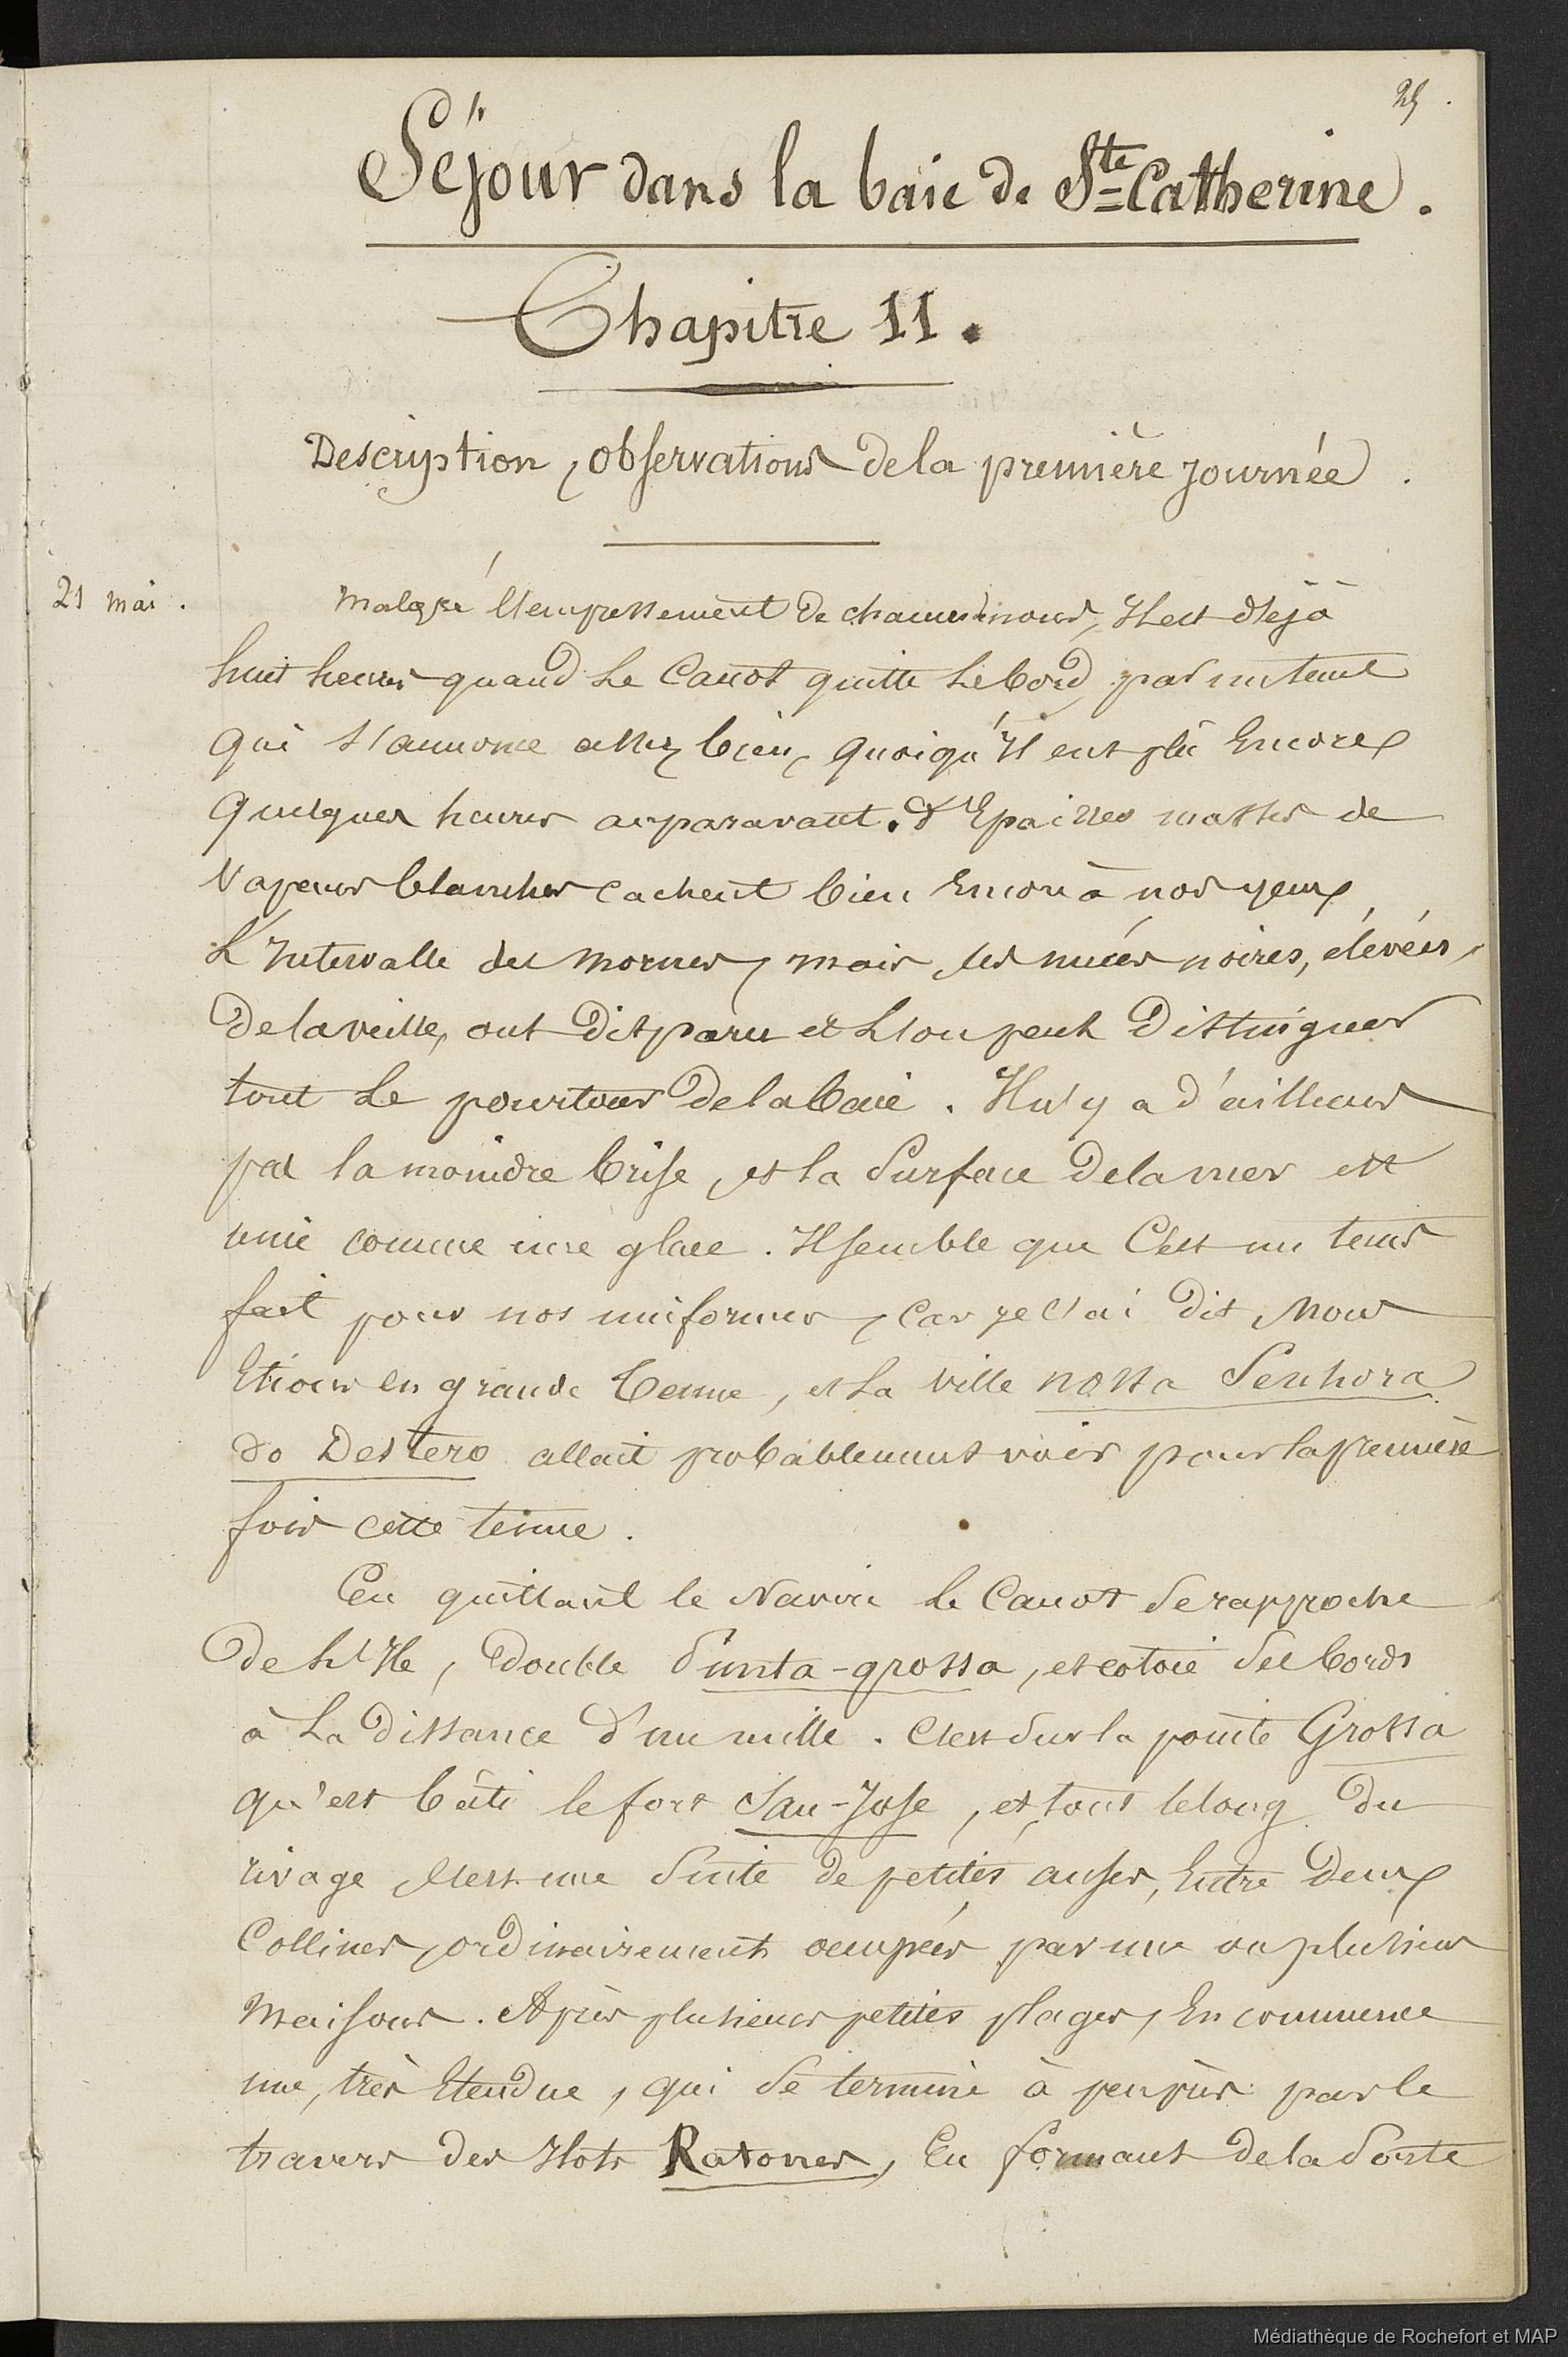 25.
Séjour dans la baie de Ste Catherine.
Chapitre 11.
Description, observations de la première journée.
21 mai.
Malgré l'empressement de chacun de nous, Il est déjà
huit heures quand le Canot quitte le bord, par un tems
qui s'annonce assez bien, quoiqu'Il eut plû Encore
quelques heures auparavant. d'Epaisses masses de
Vapeurs blanches cachent bien Encore à nos yeux
L'Intervalle des mornes, mais les nuées noires, élevées,
de la veille, ont disparu et l'on peut distinguer
tout le pourtour de la baie. Il n'y a d'ailleurs
pas la moindre brise, et la surface de la mer est
unie comme une glace. Il semble que C'est un tems
fait pour nos uniformes, car je l'ai dit, nous
Etions en grande tenue, et la ville nossa Senhora
do Destero allait probablement voir pour la première
fois cette tenue.
En quittant le Navire le Canot se rapproche
de l'Ile, double Punta-grossa, et cotoie ses bords
à la distance d'un mille. C'est sur la pointe Grossa
qu'est bâti le fort San-Jose, et tout le long du
rivage, c'est une suite de petites anses, Entre deux
Collines, ordinairement occupées par une ou plusieurs
Maisons. Après plusieurs petites plages, En commence
une, très Etendue, qui se termine à peu près par le
travers des Ilots Ratones, En formant de la Sorte
Médiathèque de Rochefort et MAP